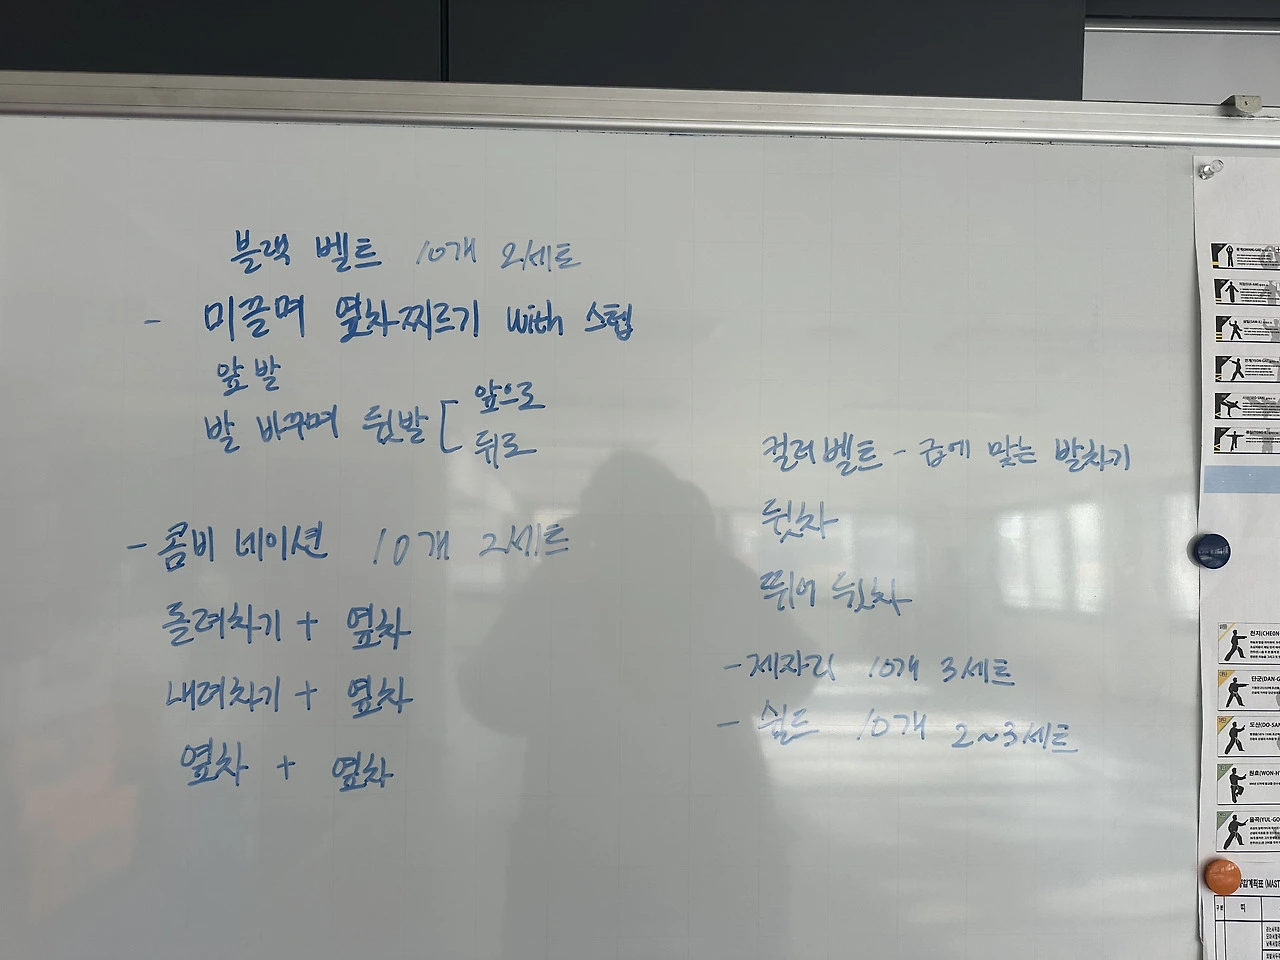 블랙 벨트 10개 2세트
- 미끌며 옆차찌르기 with 스텝
앞발
발 바꾸며 뒷발 [ 앞으로
뒤로
- 콤비네이션 10개 2세트
돌려차기 + 옆차
내려차기 + 옆차
옆차 + 옆차
컬러벨트 - 급에 맞는 발차기
뒷차
뛰어 뒷차
- 제자리 10개 3세트
- 쉴드 10개 2~3세트
천지(CHEON
단군(DAN-G
도산(DO-SAN
원효(WON-H
율곡(YUL-GO